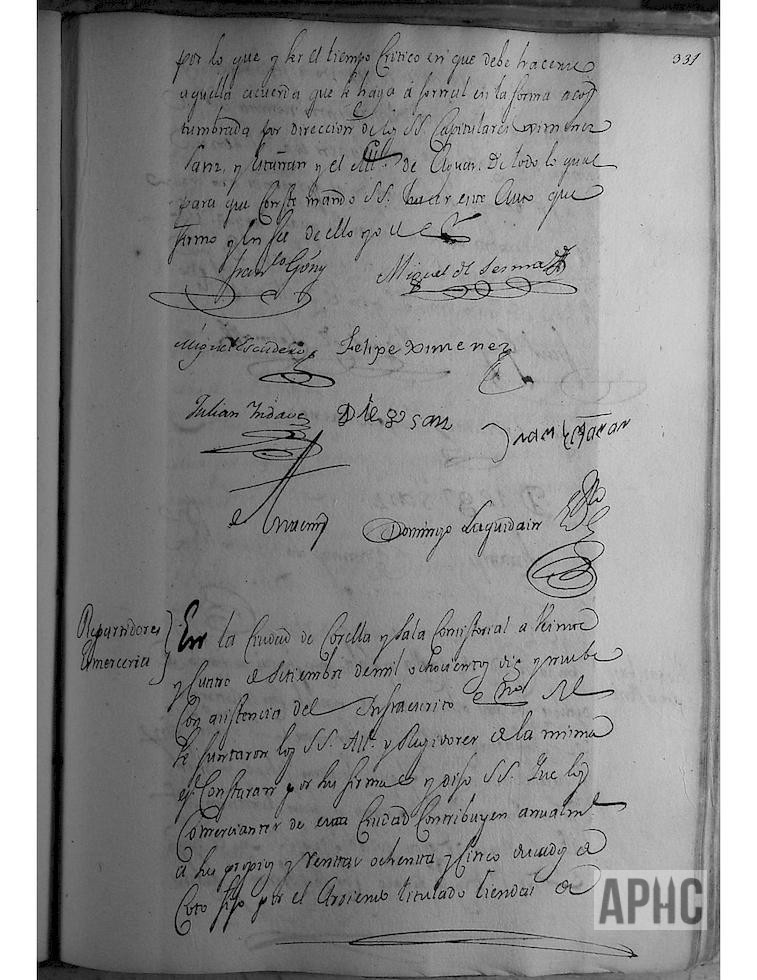 331
por lo que y ser el tiempo Critico en que debe hacerse
aquella acuerda que se haga á formal en la forma acos
tumbrada por direccion de los SS. Capitulares Ximenez
Sanz, y y el Alc.e de Aguas. De todo lo qual
para que Conste mando SS. hacer este Auto que
firmo y en fee de ello yo el
Fran.co Goñy Miguel de Sesma
Miguel Escudero Felipe Ximenez
Julian Yndave Diego sanz Juan
Ante mi Domingo Laquidain
Repartidores
de merceria
En la Ciudad de Corella y Sala Consistorial a Veinte
y Cuatro de Setiembre de mil ochocientos diez y nuebe
Con asistencia del Infraescrito es.no Rl
se juntaron los SS. Alc.e y Regidores de la misma
q.e Constaran por sus firmas y dijo SS. Que los
Comerciantes de esta Ciudad Contribuyen anualm.te
a sus propios y Rentas ochenta y Cinco ducados de
Coto fijo por el Arriendo titulado tiendas de
APHC